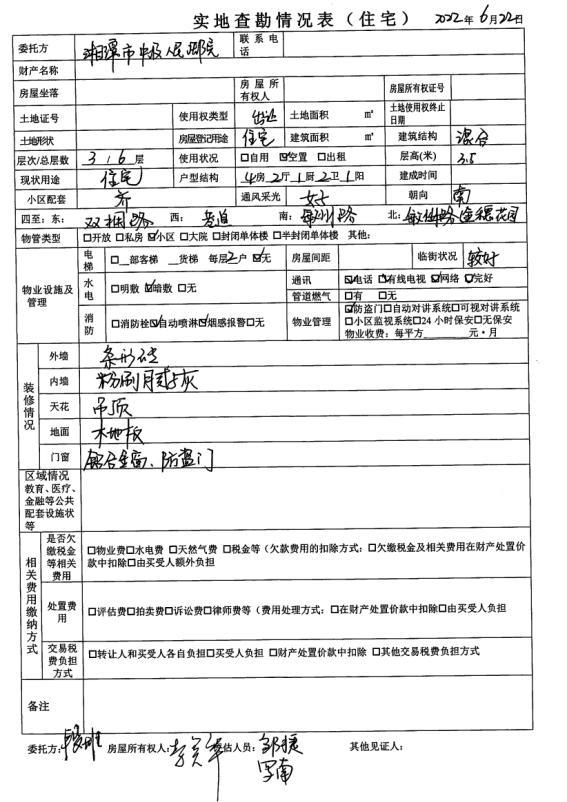 实地查勘情况表（住宅） 2022年6月22日
委托方 湘潭市中级人民法院 联系电话
财产名称
房屋坐落 房屋所有权人 房屋所有权证号
土地证号 使用权类型 出让 土地面积 ㎡ 土地使用权终止日期
土地形状 房屋登记用途 住宅 建筑面积 ㎡ 建筑结构 混合
层次/总层数 3/6层 使用状况 □自用 ☑空置 □出租 层高(米) 3.5
现状用途 住宅 户型结构 4房2厅1厨2卫1阳 建成时间
小区配套 齐 通风采光 好 朝向 南
四至：东： 双拥路 西： 巷道 南： 路 北： 花园
物管类型 □开放 □私房 ☑小区 □大院 □封闭单体楼 □半封闭单体楼 其他：
物业设施及管理
电梯 □__部客梯 __货梯 每层2户 ☑无 房屋间距 临街状况 较好
水电 □明敷 ☑暗敷 □无 通讯 ☑电话 ☑有线电视 ☑网络 ☑完好
管道燃气 □有 □无
消防 □消防栓 ☑自动喷淋 ☑烟感报警 □无 物业管理 ☑防盗门□自动对讲系统□可视对讲系统
□小区监视系统□24小时保安□无保安
物业收费：每平方______元·月
装修情况
外墙 条形砖
内墙 粉刷
天花 吊顶
地面 木地板
门窗 铝合金窗、防盗门
区域情况
教育、医疗、金融等公共配套设施状等
相关费用缴纳方式
是否欠缴税金等相关费用 □物业费□水电费 □天然气费 □税金等（欠款费用的扣除方式：□欠缴税金及相关费用在财产处置价款中扣除□由买受人额外负担
处置费用 □评估费□拍卖费□诉讼费□律师费等（费用处理方式：□在财产处置价款中扣除□由买受人负担
交易税费负担方式 □转让人和买受人各自负担□买受人负担 □财产处置价款中扣除 □其他交易税费负担方式
备注
委托方： 房屋所有权人： 评估人员： 其他见证人：